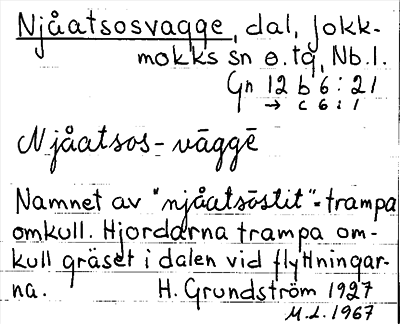 Njåatsosvagge, dal, Jokk-
mokks sn o. tg, Nb. l.
Gn 12 b 6 : 21
→ c 6 : 1
Njåatsos-vāggē
Namnet av "njåatsōstit" = trampa
omkull. Hjordarna trampa om-
kull gräset i dalen vid flyttningar-
na. H. Grundström 1927
M.L. 1967